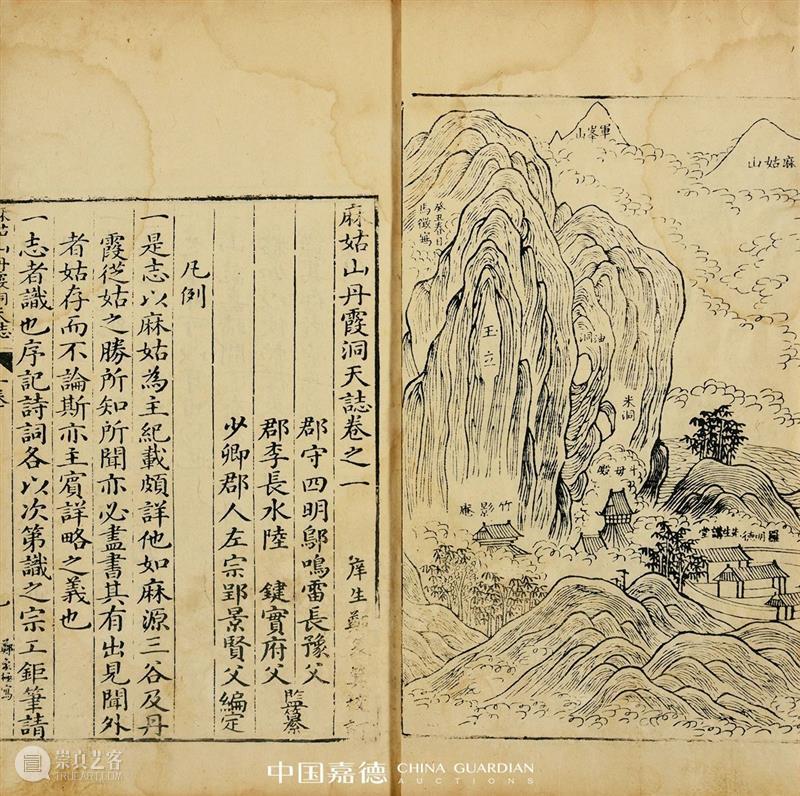 軍峯山
麻姑山
癸丑春日
馬徵寫
玉立
油洞
米洞
斗母殿
竹影庵
羅明德先生講堂
麻姑山丹霞洞天誌卷之一
庠生
郡守四明鄔鳴雷長豫父
郡李長水陸 鍵實府父
監纂
少卿郡人左宗郢景賢父編定
凡例
一是志以麻姑為主紀載頗詳他如麻源三谷及丹
霞從姑之勝所知所聞亦必盡書其有出見聞外
者姑存而不論斯亦主賓詳略之義也
一志者識也序記詩詞各以次第識之宗工鉅筆請
麻姑山丹霞洞天志
一卷
中国嘉德 CHINA GUARDIAN
AUCTIONS
崇真艺客
TRUEART.COM